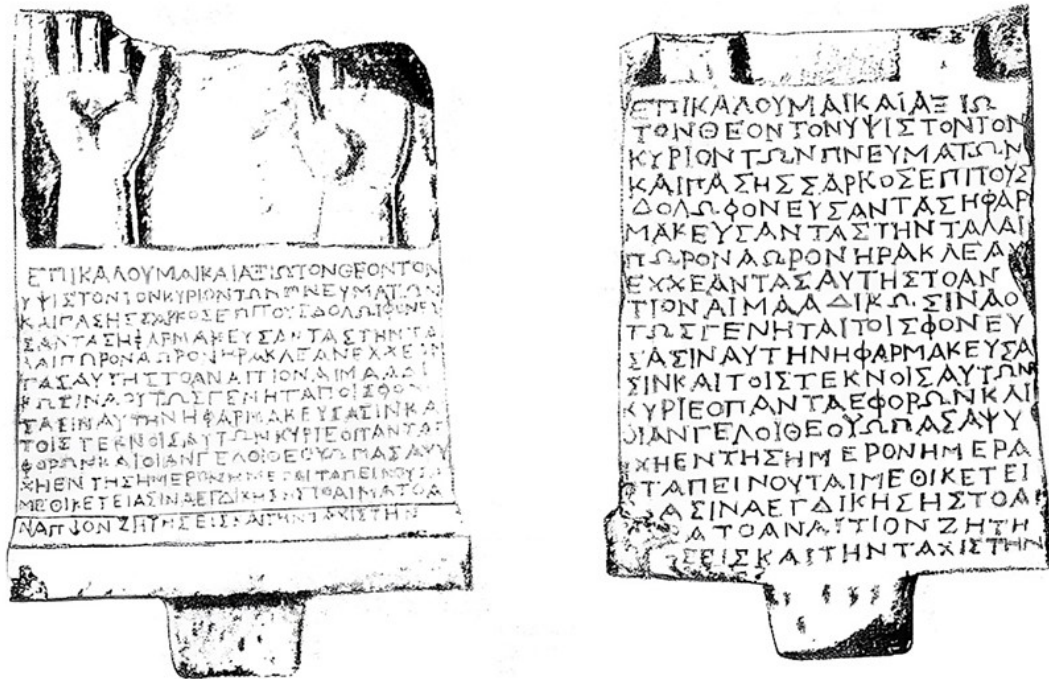 ΕΠΙΚΑΛΟΥΜΑΙΚΑΙΑΞΙΩΤΟΝΘΕΟΝΤΟΝ
ΥΨΙΣΤΟΝΤΟΝΚΥΡΙΟΝΤΩΝΠΝΕΥΜΑΤΩΝ
ΚΑΙΠΑΣΗΣΣΑΡΚΟΣΕΠΙΤΟΥΣΔΟΛΩΦΟΝΕΥ
ΣΑΝΤΑΣΗΦΑΡΜΑΚΕΥΣΑΝΤΑΣΤΗΝΤΑ
ΛΑΙΠΩΡΟΝΑΩΡΟΝΗΡΑΚΛΕΑΝΕΧΧΕΑΝ
ΤΑΣΑΥΤΗΣΤΟΑΝΑΙΤΙΟΝΑΙΜΑΑΔΙ
ΚΩΣΙΝΑΟΥΤΩΣΓΕΝΗΤΑΙΤΟΙΣΦΟΝΕΥ
ΣΑΣΙΝΑΥΤΗΝΗΦΑΡΜΑΚΕΥΣΑΣΙΝΚΑΙ
ΤΟΙΣΤΕΚΝΟΙΣΑΥΤΩΝΚΥΡΙΕΟΠΑΝΤΑΕ
ΦΟΡΩΝΚΑΙΟΙΑΝΓΕΛΟΙΘΕΟΥΩΠΑΣΑΨΥ
ΧΗΕΝΤΗΣΗΜΕΡΟΝΗΜΕΡΑΙΤΑΠΕΙΝΟΥΤΑΙ
ΜΕΘΙΚΕΤΕΙΑΣΙΝΑΕΓΔΙΚΗΣΗΣΤΟΑΙΜΑΤΟΑ
ΝΑΙΤΙΟΝΖΗΤΗΣΕΙΣΚΑΙΤΗΝΤΑΧΙΣΤΗΝ
ΕΠΙΚΑΛΟΥΜΑΙΚΑΙΑΞΙΩ
ΤΟΝΘΕΟΝΤΟΝΥΨΙΣΤΟΝΤΟΝ
ΚΥΡΙΟΝΤΩΝΠΝΕΥΜΑΤΩΝ
ΚΑΙΠΑΣΗΣΣΑΡΚΟΣΕΠΙΤΟΥΣ
ΔΟΛΩΦΟΝΕΥΣΑΝΤΑΣΗΦΑΡ
ΜΑΚΕΥΣΑΝΤΑΣΤΗΝΤΑΛΑΙ
ΠΩΡΟΝΑΩΡΟΝΗΡΑΚΛΕΑΝ
ΕΧΧΕΑΝΤΑΣΑΥΤΗΣΤΟΑΝ
ΤΙΟΝΑΙΜΑΑΔΙΚΩΣΙΝΑΟ
ΤΩΣΓΕΝΗΤΑΙΤΟΙΣΦΟΝΕΥ
ΣΑΣΙΝΑΥΤΗΝΗΦΑΡΜΑΚΕΥΣΑ
ΣΙΝΚΑΙΤΟΙΣΤΕΚΝΟΙΣΑΥΤΩΝ
ΚΥΡΙΕΟΠΑΝΤΑΕΦΟΡΩΝΚΑΙ
ΟΙΑΝΓΕΛΟΙΘΕΟΥΩΠΑΣΑΨΥ
ΧΗΕΝΤΗΣΗΜΕΡΟΝΗΜΕΡΑ
ΤΑΠΕΙΝΟΥΤΑΙΜΕΘΙΚΕΤΕΙ
ΑΣΙΝΑΕΓΔΙΚΗΣΗΣΤΟΑ
ΑΤΟΑΝΑΙΤΙΟΝΖΗΤΗ
ΣΕΙΣΚΑΙΤΗΝΤΑΧΙΣΤΗΝ